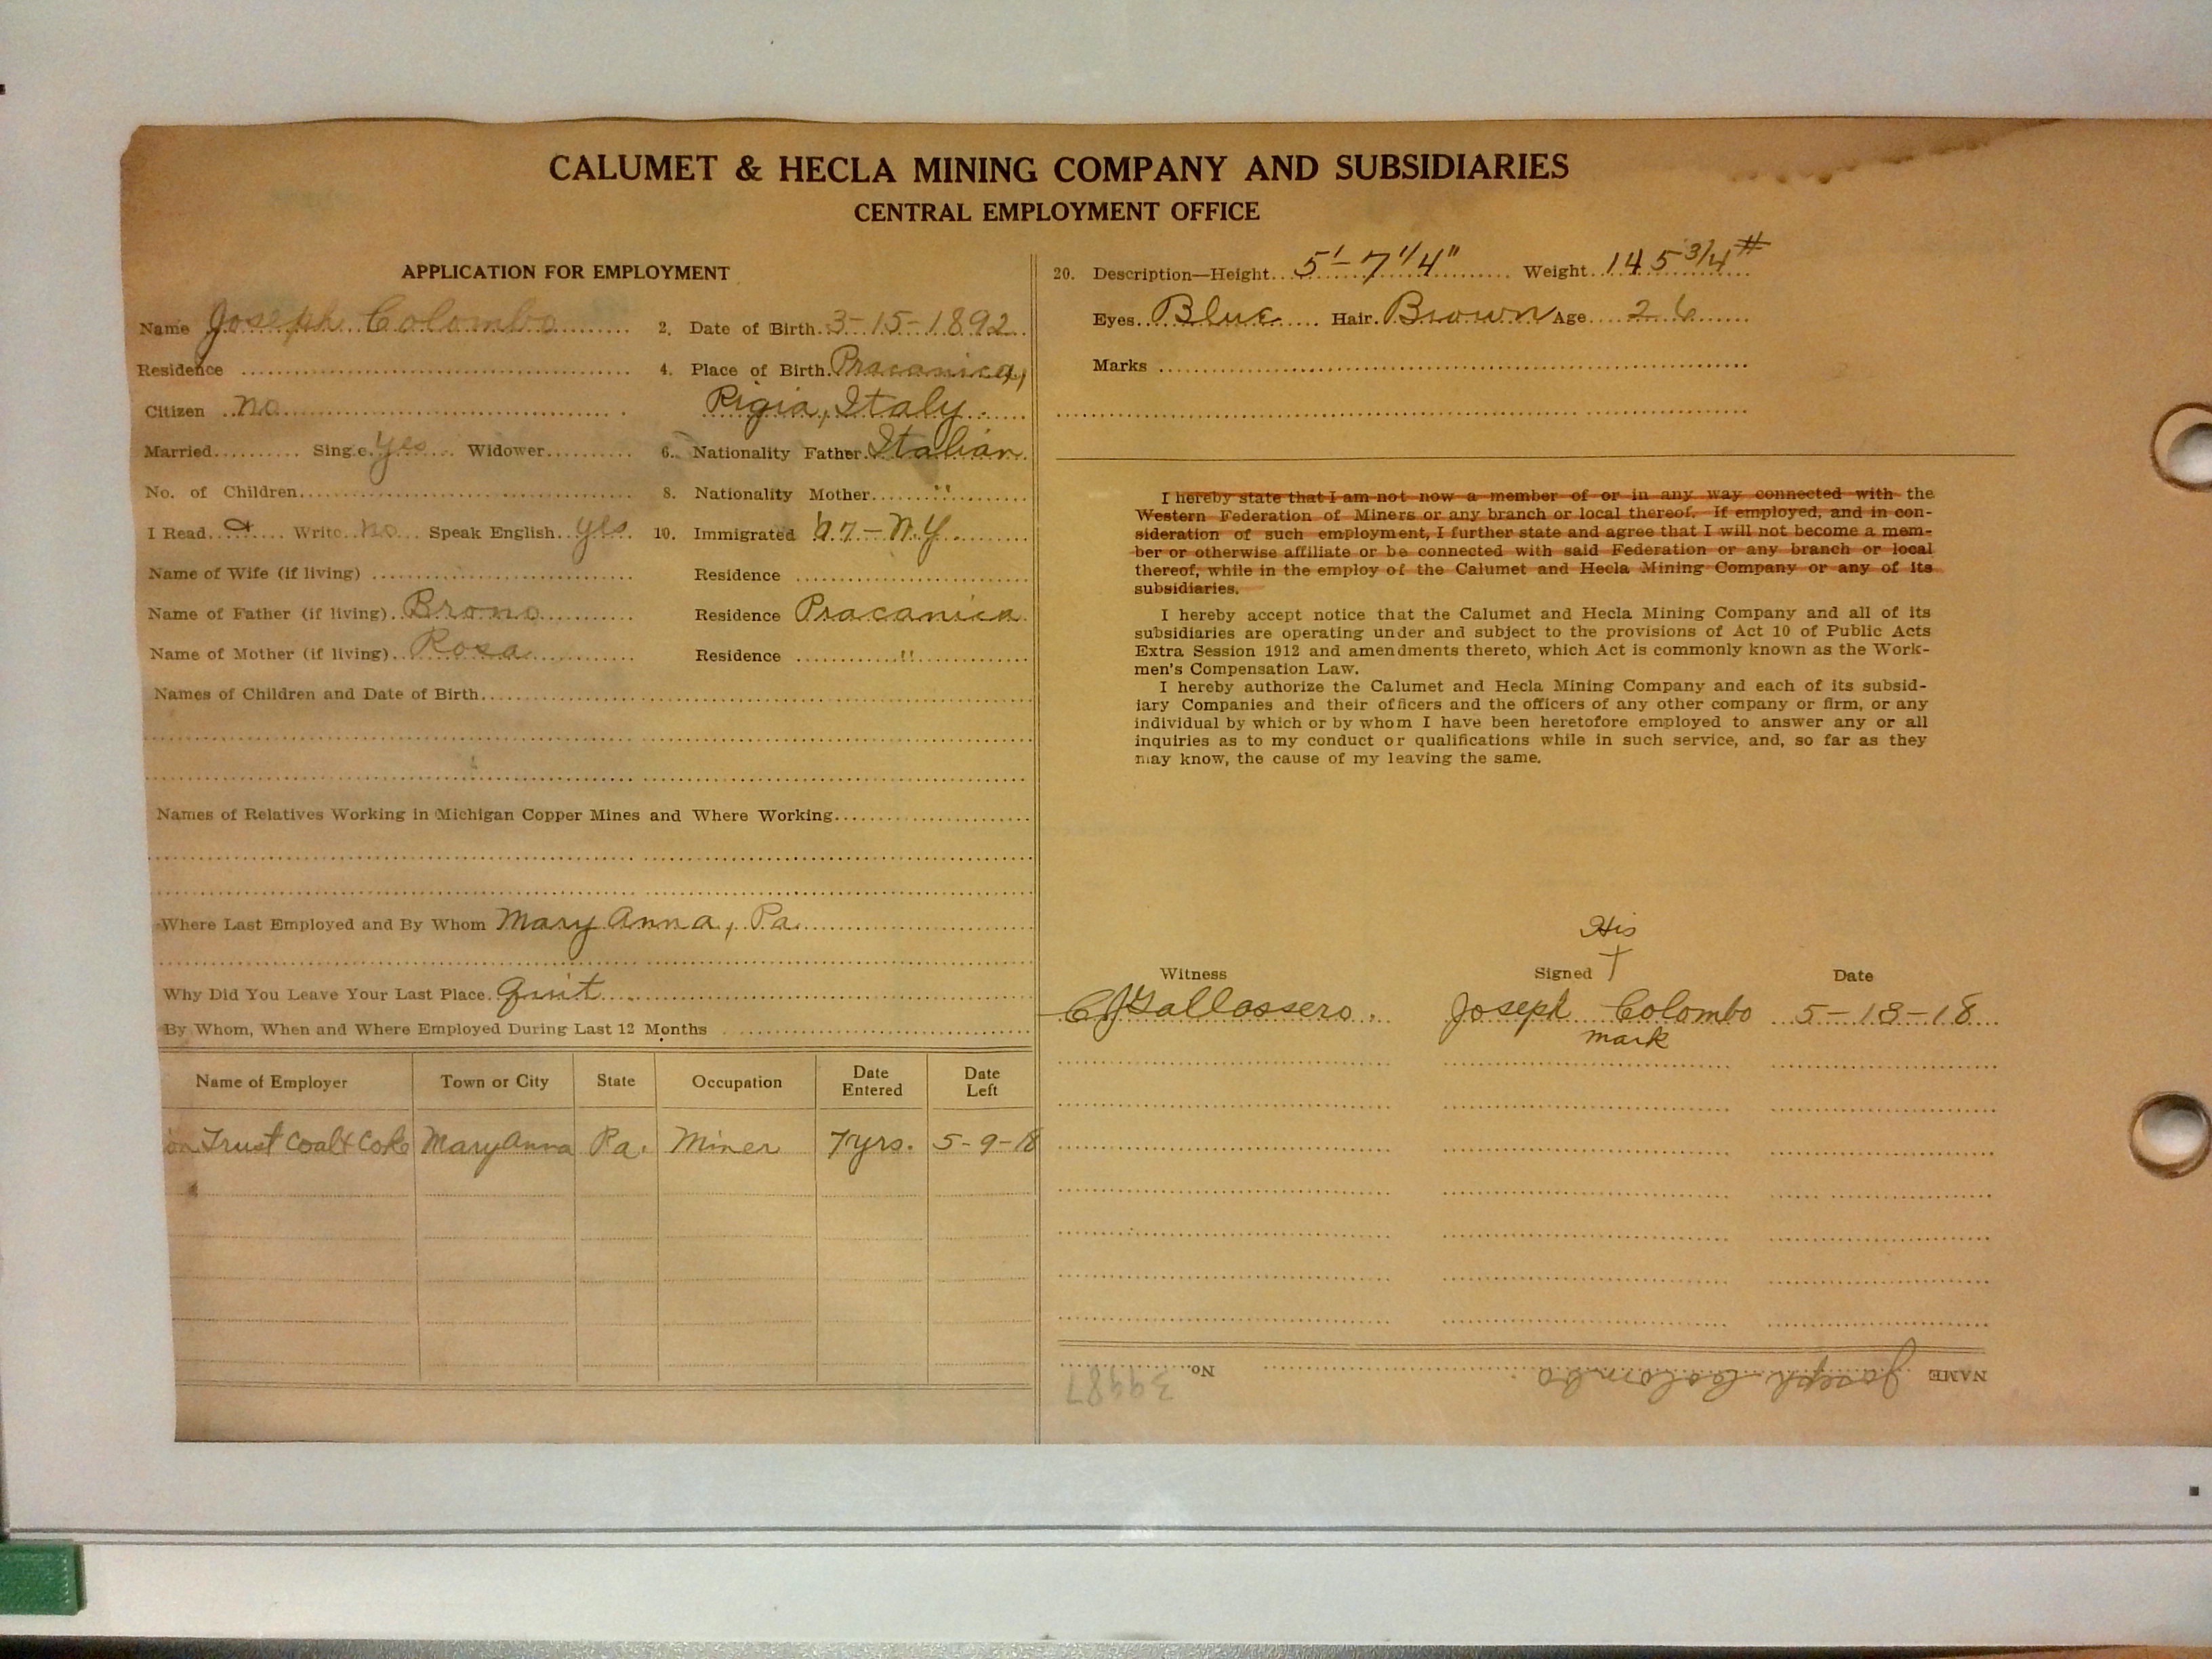 CALUMET & HECLA MINING COMPANY AND SUBSIDIARIES
CENTRAL EMPLOYMENT OFFICE
APPLICATION FOR EMPLOYMENT
Name Joseph Colombo 2. Date of Birth 3-15-1892
Residence 4. Place of Birth Pracanica,
Citizen no Rigia, Italy
Married Single yes Widower 6. Nationality Father Italian
No. of Children 8. Nationality Mother "
I Read Write no Speak English yes 10. Immigrated '07-N.Y.
Name of Wife (if living) Residence
Name of Father (if living) Brono Residence Pracanica
Name of Mother (if living) Rosa Residence "
Names of Children and Date of Birth
Names of Relatives Working in Michigan Copper Mines and Where Working
Where Last Employed and By Whom Mary Anna, Pa.
Why Did You Leave Your Last Place. Quit
By Whom, When and Where Employed During Last 12 Months
Name of Employer Town or City State Occupation Date Entered Date Left
Trust Coal & Coke Mary Anna Pa. Miner 7 yrs. 5-9-18
20. Description—Height 5'-7 1/4" Weight 145 3/4 #
Eyes Blue Hair Brown Age 26
Marks
I hereby state that I am not now a member of or in any way connected with the
Western Federation of Miners or any branch or local thereof. If employed, and in con-
sideration of such employment, I further state and agree that I will not become a mem-
ber or otherwise affiliate or be connected with said Federation or any branch or local
thereof, while in the employ of the Calumet and Hecla Mining Company or any of its
subsidiaries.
I hereby accept notice that the Calumet and Hecla Mining Company and all of its
subsidiaries are operating under and subject to the provisions of Act 10 of Public Acts
Extra Session 1912 and amendments thereto, which Act is commonly known as the Work-
men's Compensation Law.
I hereby authorize the Calumet and Hecla Mining Company and each of its subsid-
iary Companies and their officers and the officers of any other company or firm, or any
individual by which or by whom I have been heretofore employed to answer any or all
inquiries as to my conduct or qualifications while in such service, and, so far as they
may know, the cause of my leaving the same.
His
Witness Signed † Date
Joseph Colombo 5-13-18
mark
NAME Joseph Colombo No. 39987